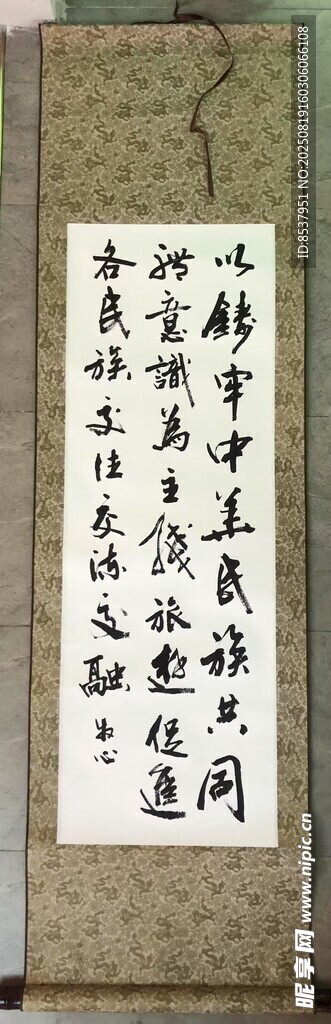 以鑄牢中華民族共同
體意識為主綫旅遊促進
各民族交往交流交融 牧心
ID:8537951 NO:20250819160306066108
昵享网 www.nipic.cn